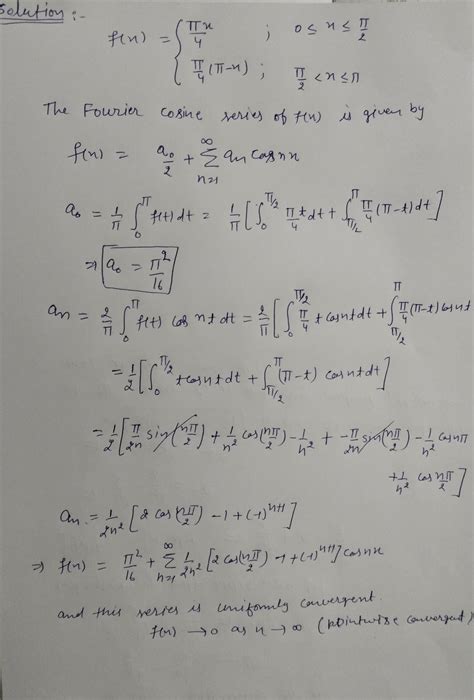 Solution :-
f(x) = { πx/4 ; 0 ≤ x ≤ π/2
π/4 (π-x) ; π/2 < x ≤ π
The Fourier cosine series of f(x) is given by
f(x) = a₀/2 + ∞Σn=1 an cos nx
a₀ = 1/π ∫₀^π f(t) dt = 1/π [∫₀^π/2 π/4 t dt + ∫π/2^π π/4 (π-t) dt]
⇒ a₀ = π²/16
an = 2/π ∫₀^π f(t) cos nt dt = 2/π [∫₀^π/2 π/4 t cosnt dt + ∫π/2^π π/4 (π-t) cosnt
= 1/2 [∫₀^π/2 t cosnt dt + ∫π/2^π (π-t) cosnt dt]
= 1/2 [π/2n sin(nπ/2) + 1/n² cos(nπ/2) - 1/n² + -π/2n sin(nπ/2) - 1/n² cosnπ
+ 1/n² cos nπ/2]
an = 1/2n² [2 cos(nπ/2) - 1 + (-1)^n+1]
⇒ f(x) = π²/16 + ∞Σn=1 1/2n² [2 cos(nπ/2) - 1 + (-1)^n+1] cosnx
and this series is uniformly convergent.
f(x) → 0 as n → ∞ (pointwise convergent)